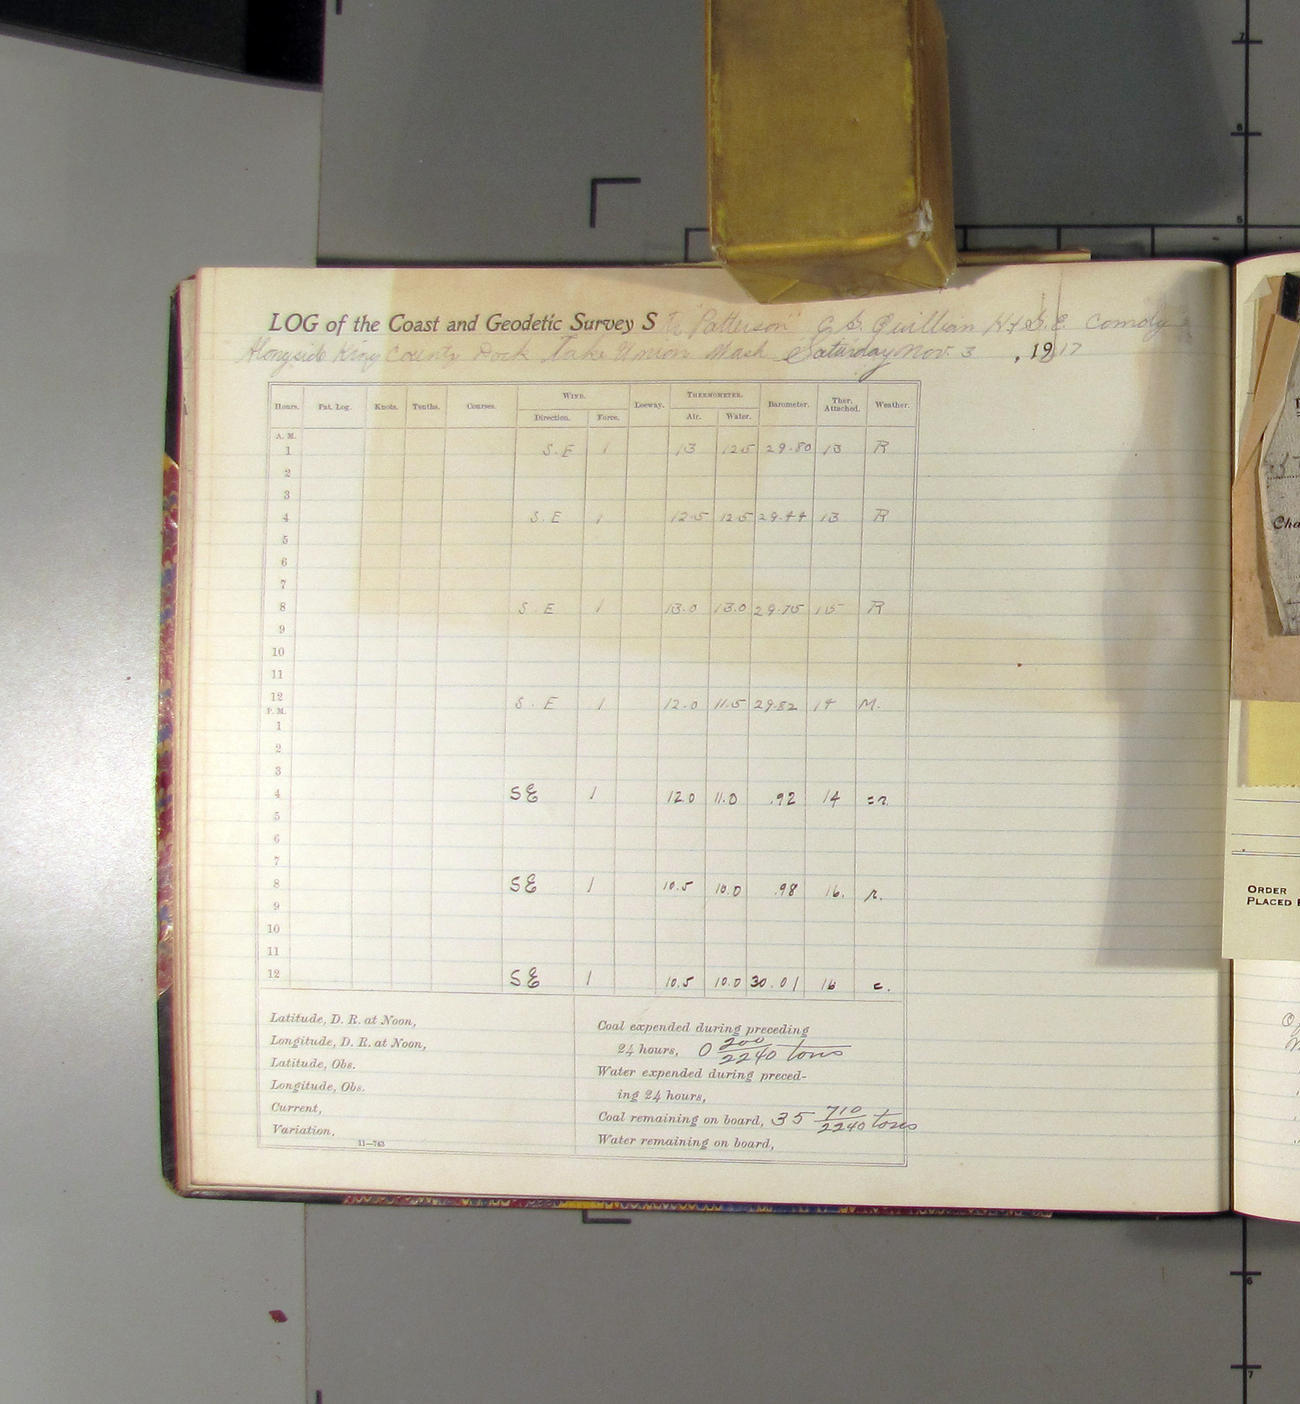 LOG of the Coast and Geodetic Survey Str "Patterson" C. G. Quillian H. & G. E. Comdg
Alongside King County Dock Lake Union Wash Saturday Nov. 3, 1917
Hours. Pat. Log. Knots. Tenths. Courses. WIND. Direction. Force. Leeway. THERMOMETER. Air. Water. Barometer. Ther. Attached. Weather.
A. M.
1 S. E 1 13 12.5 29.80 13 R
2
3
4 S. E 1 12.5 12.5 29.44 13 R
5
6
7
8 S. E 1 13.0 13.0 29.75 15 R
9
10
11
12 S. E 1 12.0 11.5 29.82 14 M.
P. M.
1
2
3
4 SE 1 12.0 11.0 .92 14 = r.
5
6
7
8 SE 1 10.5 10.0 .98 16. r.
9
10
11
12 SE 1 10.5 10.0 30.01 16 c.
Latitude, D. R. at Noon,
Longitude, D. R. at Noon,
Latitude, Obs.
Longitude, Obs.
Current,
Variation,
11—783
Coal expended during preceding
24 hours, 0 200/2240 tons
Water expended during preced-
ing 24 hours,
Coal remaining on board, 35 710/2240 tons
Water remaining on board,
Cha
ORDER
PLACED
7
6
5
6
7